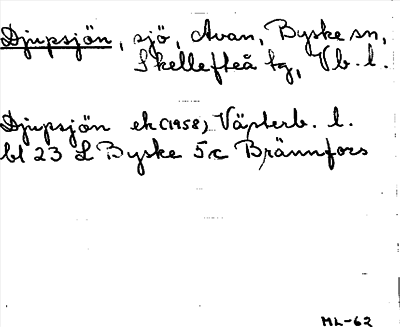 Djupsjön, sjö, Avan, Byske sn,
Skellefteå tg, Vb. l.
Djupsjön ek(1958) Västerb. l.
bl 23 L Byske 5c Brännfors
ML-62